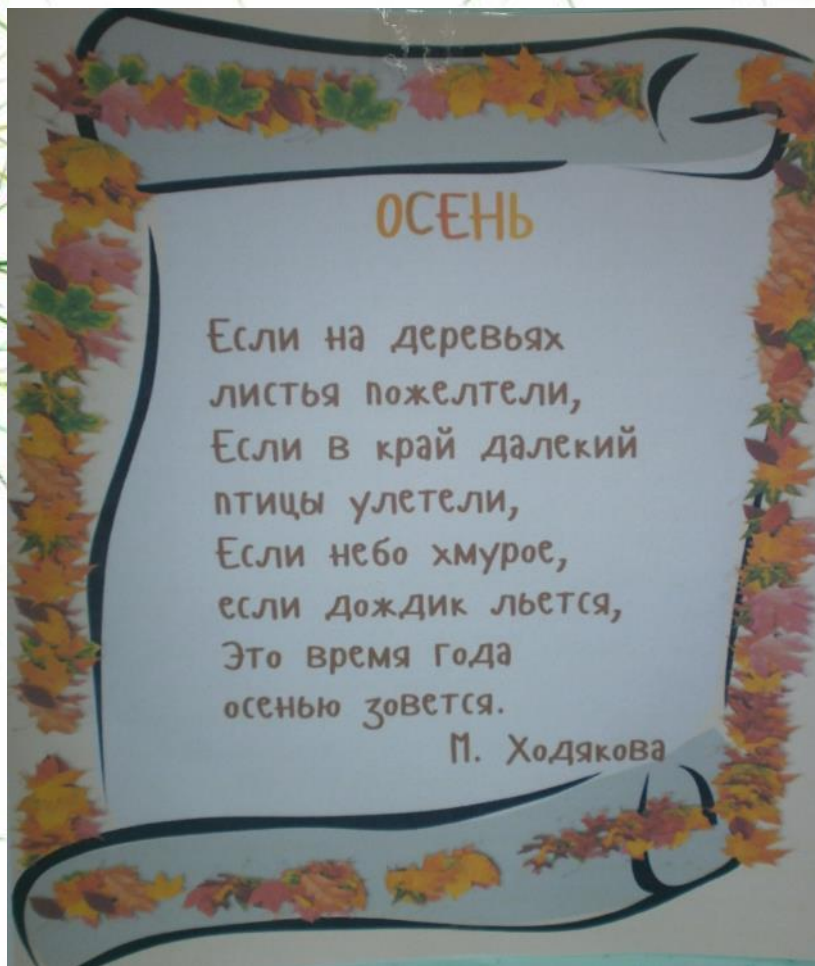 ОСЕНЬ
Если на деревьях
листья пожелтели,
Если в край далекий
птицы улетели,
Если небо хмурое,
если дождик льется,
Это время года
осенью зовется.
М. Ходякова